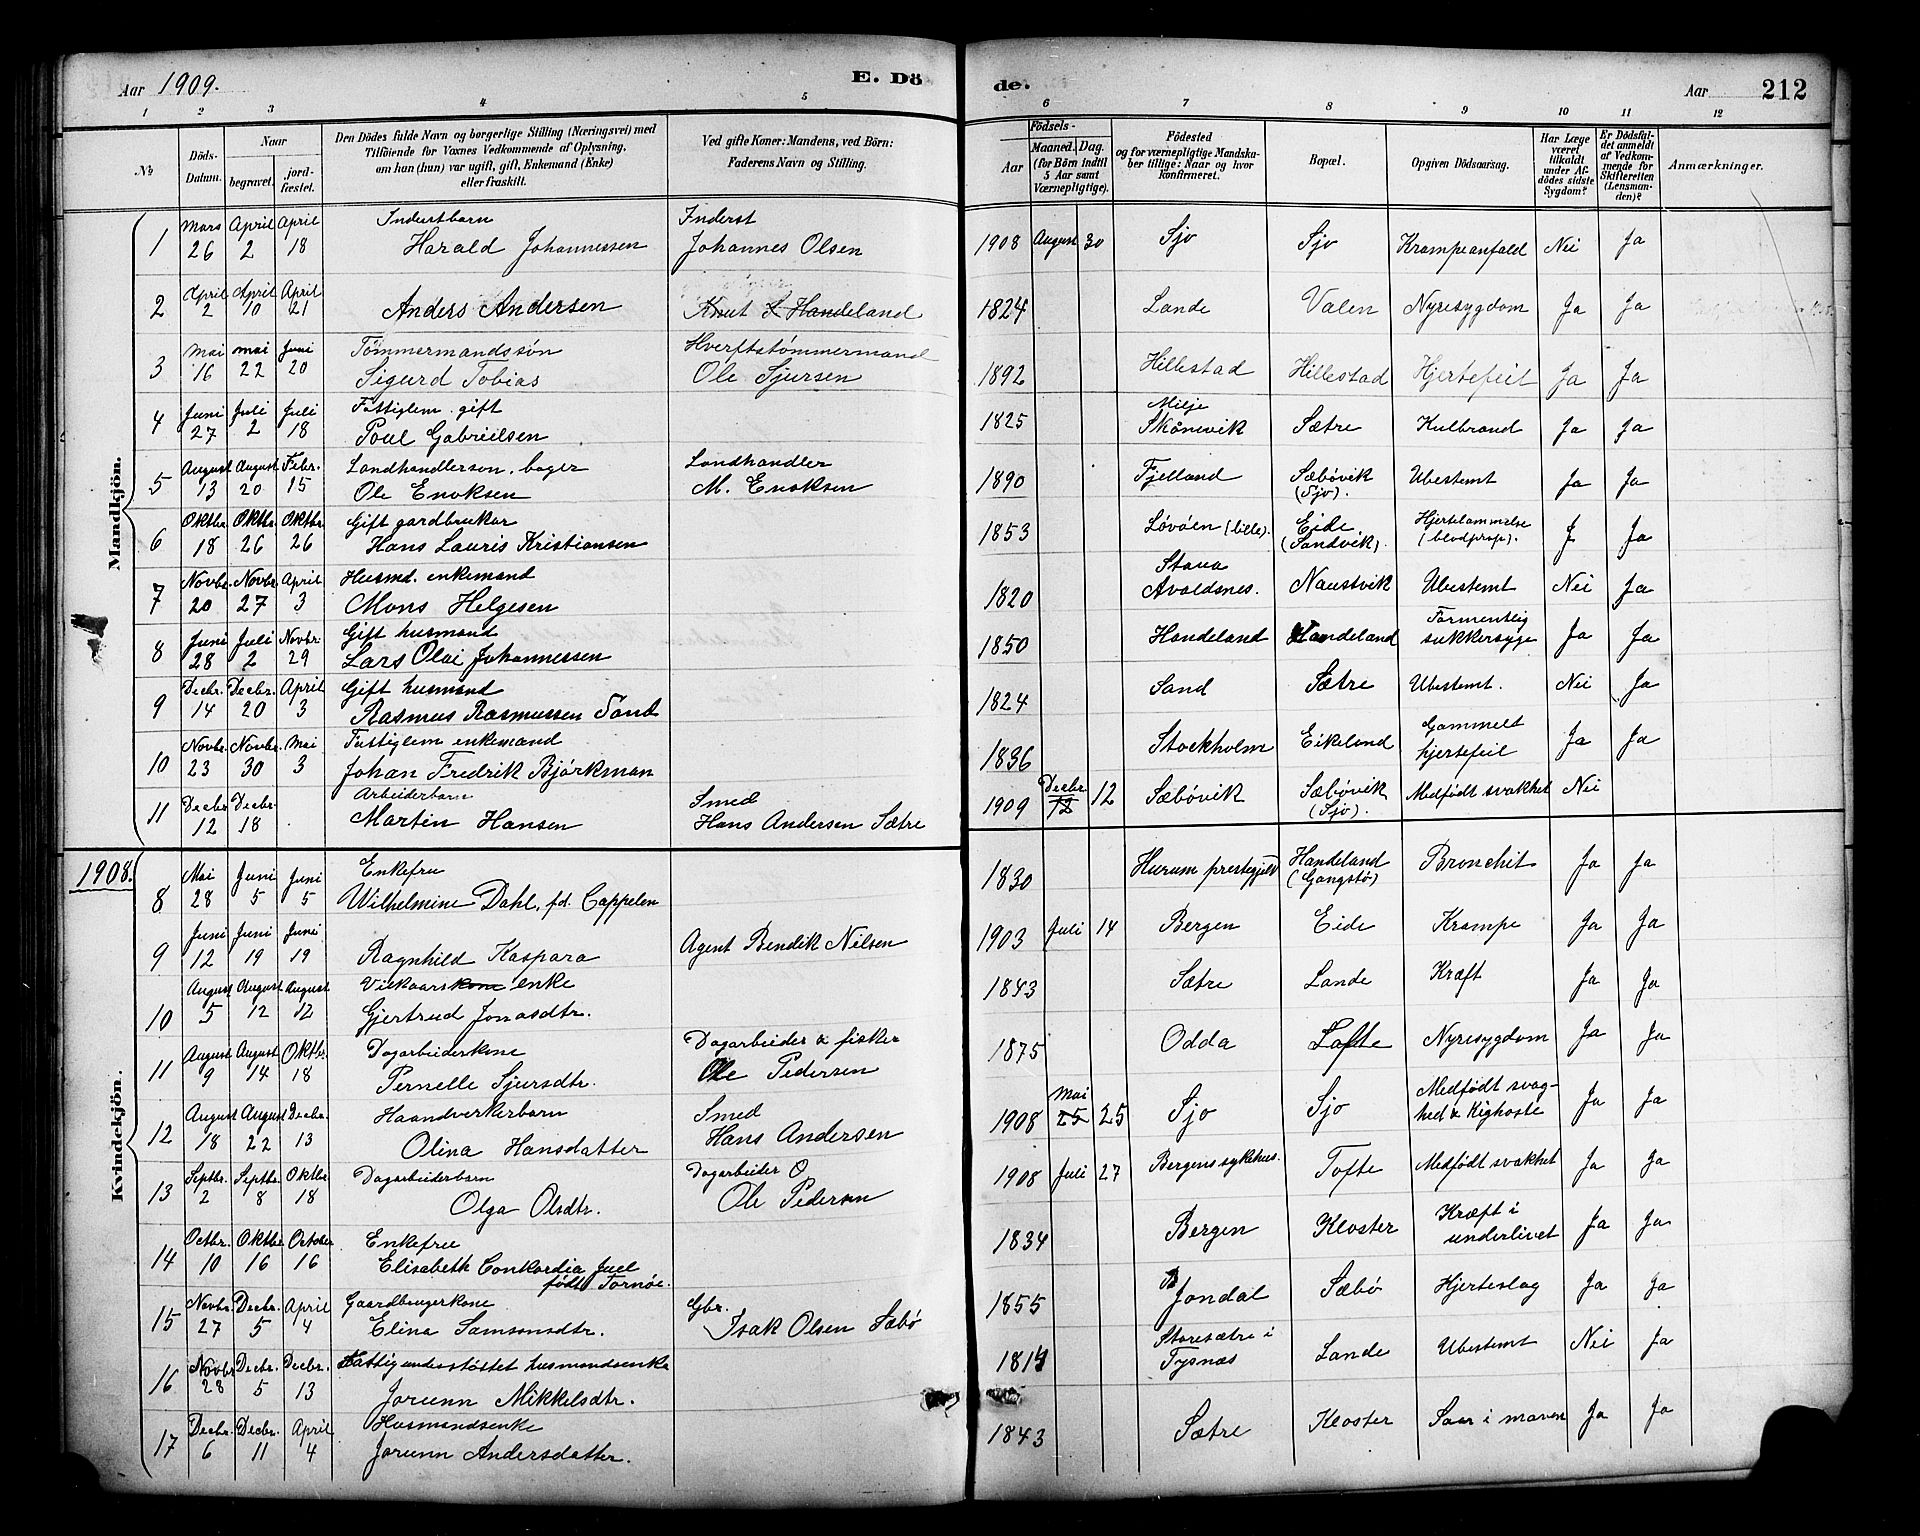 Aar 1909. E. Dö
de. Aar 212
1 2 3 4 5
6 7 8 9 10 11 12
№ Döds-Datum. Naar begravet. jord-fæstet. Den Dödes fulde Navn og borgerlige Stilling (Næringsvei) med Tilföiende for Voxnes Vedkommende af Oplysning, om han (hun) var ugift, gift, Enkemand (Enke) eller fraskilt. Ved gifte Koner: Mandens, ved Börn: Faderens Navn og Stilling.
Födsels- Aar Maaned. Dag. (for Börn indtil 5 Aar samt Værnepligtige). Födested og for værnepligtige Mandskaber tillige: Naar og hvor konfirmeret. Bopæl. Opgiven Dödsaarsag. Har Læge været tilkaldt under Afdödes sidste Sygdom? Er Dödsfaldet anmeldt af Vedkommende for Skifteretten (Lensmanden)? Anmærkninger.
Mandkjön.
1 Mars 26 April 2 April 18 Inderstbarn Harald Johannessen Inderst Johannes Olsen 1908 August 30 Sjo Sjo Krampeanfald Nei Ja
2 April 2 April 10 April 21 Anders Andersen Knut L Handeland 1824 Lande Valen Nyresygdom Ja Ja
3 Mai 16 mai 22 Juni 20 Tömmermandssön Sigurd Tobias Hverftstömmermand Ole Sjursen 1892 Hillestad Hillestad Hjertefeil Ja Ja
4 Juni 27 Juli 2 Juli 18 Fattiglem. gift Poul Gabrielsen 1825 Milje Skånevik Sætre Kulbrand Ja Ja
5 August 13 August 20 Febr. 15 Landhandlerson. bager Ole Enoksen Landhandler M. Enoksen 1890 Fjelland Sæbövik (Sjo). Ubestemt Ja Ja
6 Oktbr 18 Oktbr. 26 Oktbr 26 Gift gardbruker Hans Lauris Kristiansen 1853 Lövöen (lille). Eide (Sandvik). Hjertelammelse (blodprop). J Ja
7 Novbr. 20 Novbr. 27 April 3 Husmd. enkemand Mons Helgesen 1820 Stava Avaldsnes. Naustvik Ubestemt Nei Ja
8 Juni 28 Juli 2 Novbr. 29 Gift husmand Lars Olai Johannessen 1850 Handeland Handeland Formentlig sukkersyge Ja Ja
9 Decbr. 14 Decbr. 20 April 3 Gift husmand Rasmus Rasmussen Sand 1824 Sand Sætre Ubestemt. Nei Ja
10 Novbr. 23 Novbr. 30 Mai 3 Fattiglem enkemand Johan Fredrik Björkman 1836 Stockholm Eikeland Gammelt hjertefeil Ja Ja
11 Decbr 12 Decbr. 18 Arbeiderbarn Martin Hansen Smed Hans Andersen Sætre 1909 Decbr 12 12 Sæbövik Sæbövik (Sjo). Medfödt svakhet Nei
1908.
Kvindekjön.
8 Mai 28 Juni 5 Juni 5 Enkefru Wilhelmine Dahl, fd. Cappelen 1830 Hurum prestegjeld Handeland (Gangstö) Bronchit Ja Ja
9 Juni 12 Juni 19 Juni 19 Ragnhild Kaspara Agent Bendik Nilsen 1903 Juli 14 Bergen Eide Krampe Ja Ja
10 August 5 August 12 August 12 Vilkaarskone enke Gjertrud Jonasdtr. 1843 Sætre Lande Kræft Ja Ja
11 August 9 August 14 Oktbr. 18 Dagarbeiderkone Pernelle Sjursdtr. Dagarbeider & fisker Ole Pedersen 1875 Odda Tofte Nyresygdom Ja Ja
12 August 18 August 22 Decbr. 13 Haandverkerbarn Olina Hansdatter Smed Hans Andersen 1908 Mai 25 25 Sjo Sjo Medfödt svaghed & Kighoste Ja Ja
13 Septbr. 2 Septbr. 8 Oktbr 18 Dagarbeiderbarn Olga Olsdtr. Dagarbeider O Ole Pedersen 1908 Juli 27 Bergens sykehus. Tofte Medfödt svakhet Ja Ja
14 Octbr. 10 Oktbr 16 October 16 Enkefru Elisabeth Conkordia Juel födt Tornöe. 1834 Bergen Kloster Kræft i underlivet Ja Ja
15 Novbr. 27 Decbr. 5 April 4 Gaardbrugerkone Elina Samsonsdtr. Gbr. Isak Olsen Sæbö 1855 Jondal Sæbö Hjerteslag Ja Ja
16 Novbr 28 Decbr. 5 Decbr. 13 Fattigunderstöttet husmandsenke Jorunn Mikkelsdtr. 1814 Storesætre i Tysnæs Lande Ubestemt Nei Ja
17 Decbr. 6 Decbr. 11 April 4 Husmandsenke Jorunn Andersdatter. 1843 Sætre Kloster Saar i maven Ja Ja